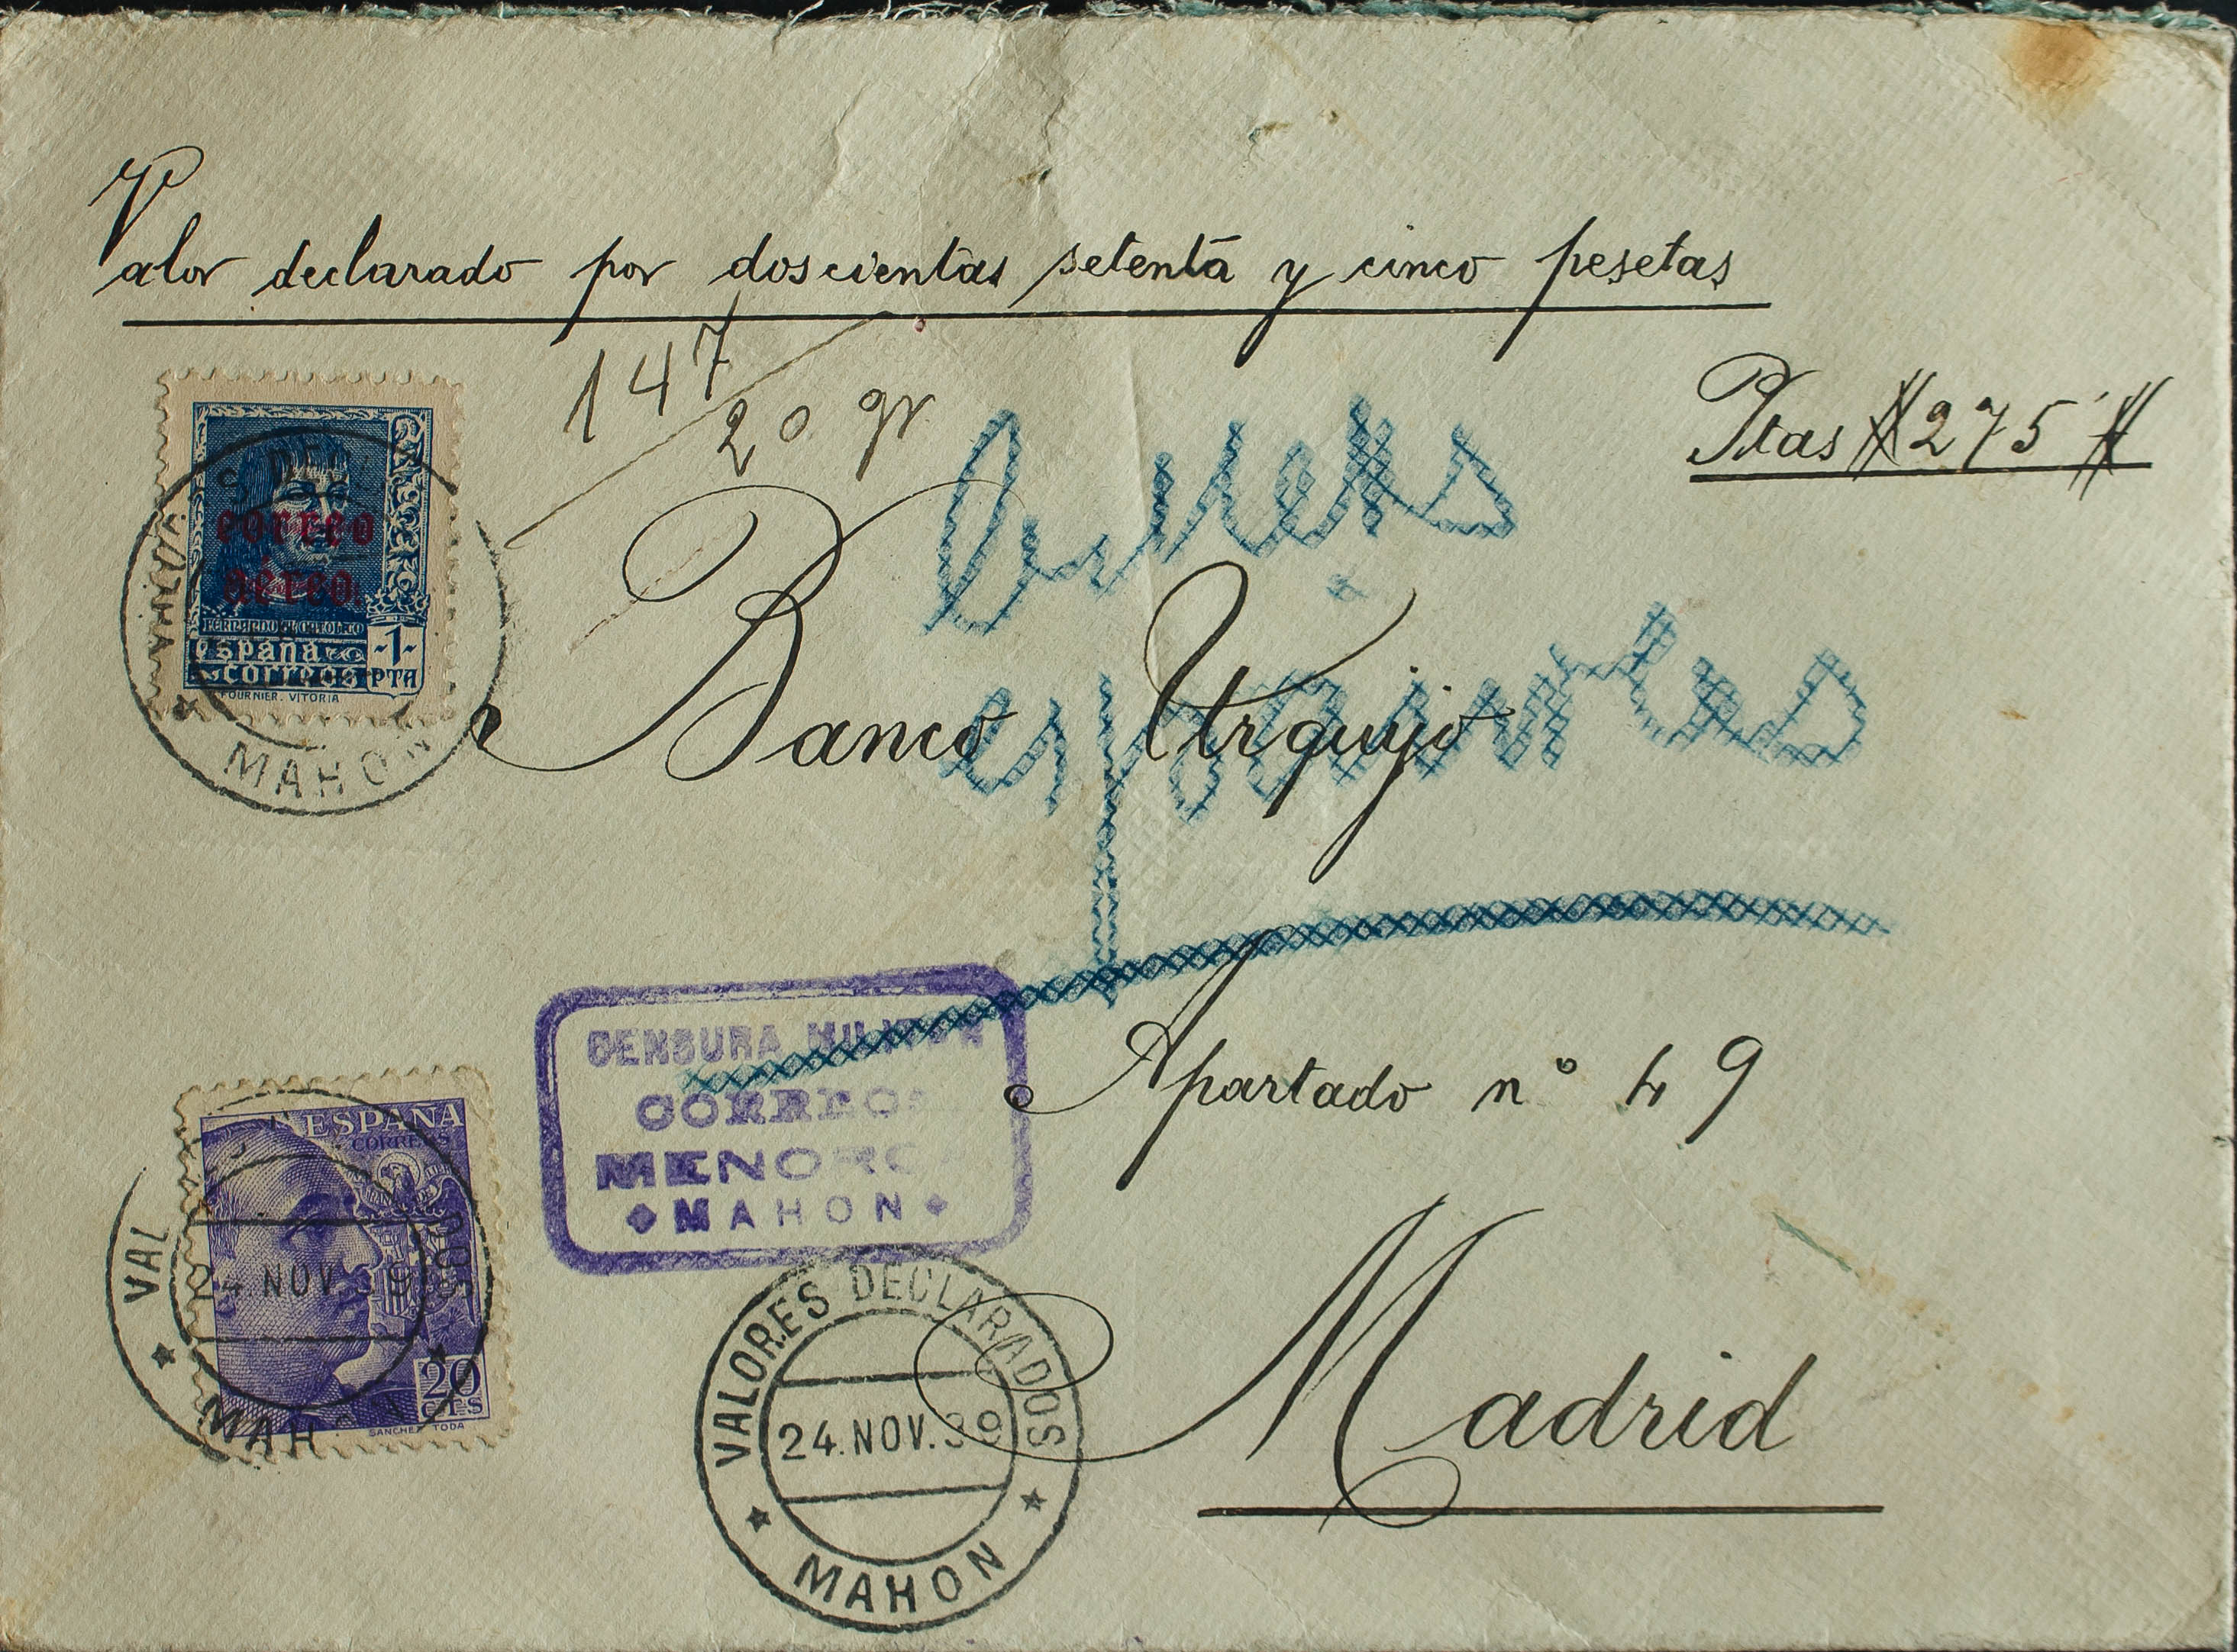 Valor declarado por doscientas setenta y cinco pesetas
147
20 gr
Ptas #275'#
correo
aéreo.
FERNANDO EL CATÓLICO
españa
correos
-1-
PTA
FOURNIER. VITORIA
MAHON
Banco Urquijo
españoles
CENSURA MILITAR
CORREOS
MENORCA
MAHON
Apartado nº 49
ESPAÑA
CORREOS
24 NOV. 39
20
CTS
SANCHEZ TODA
MAHON
VALORES DECLARADOS
24.NOV.39
MAHON
Madrid